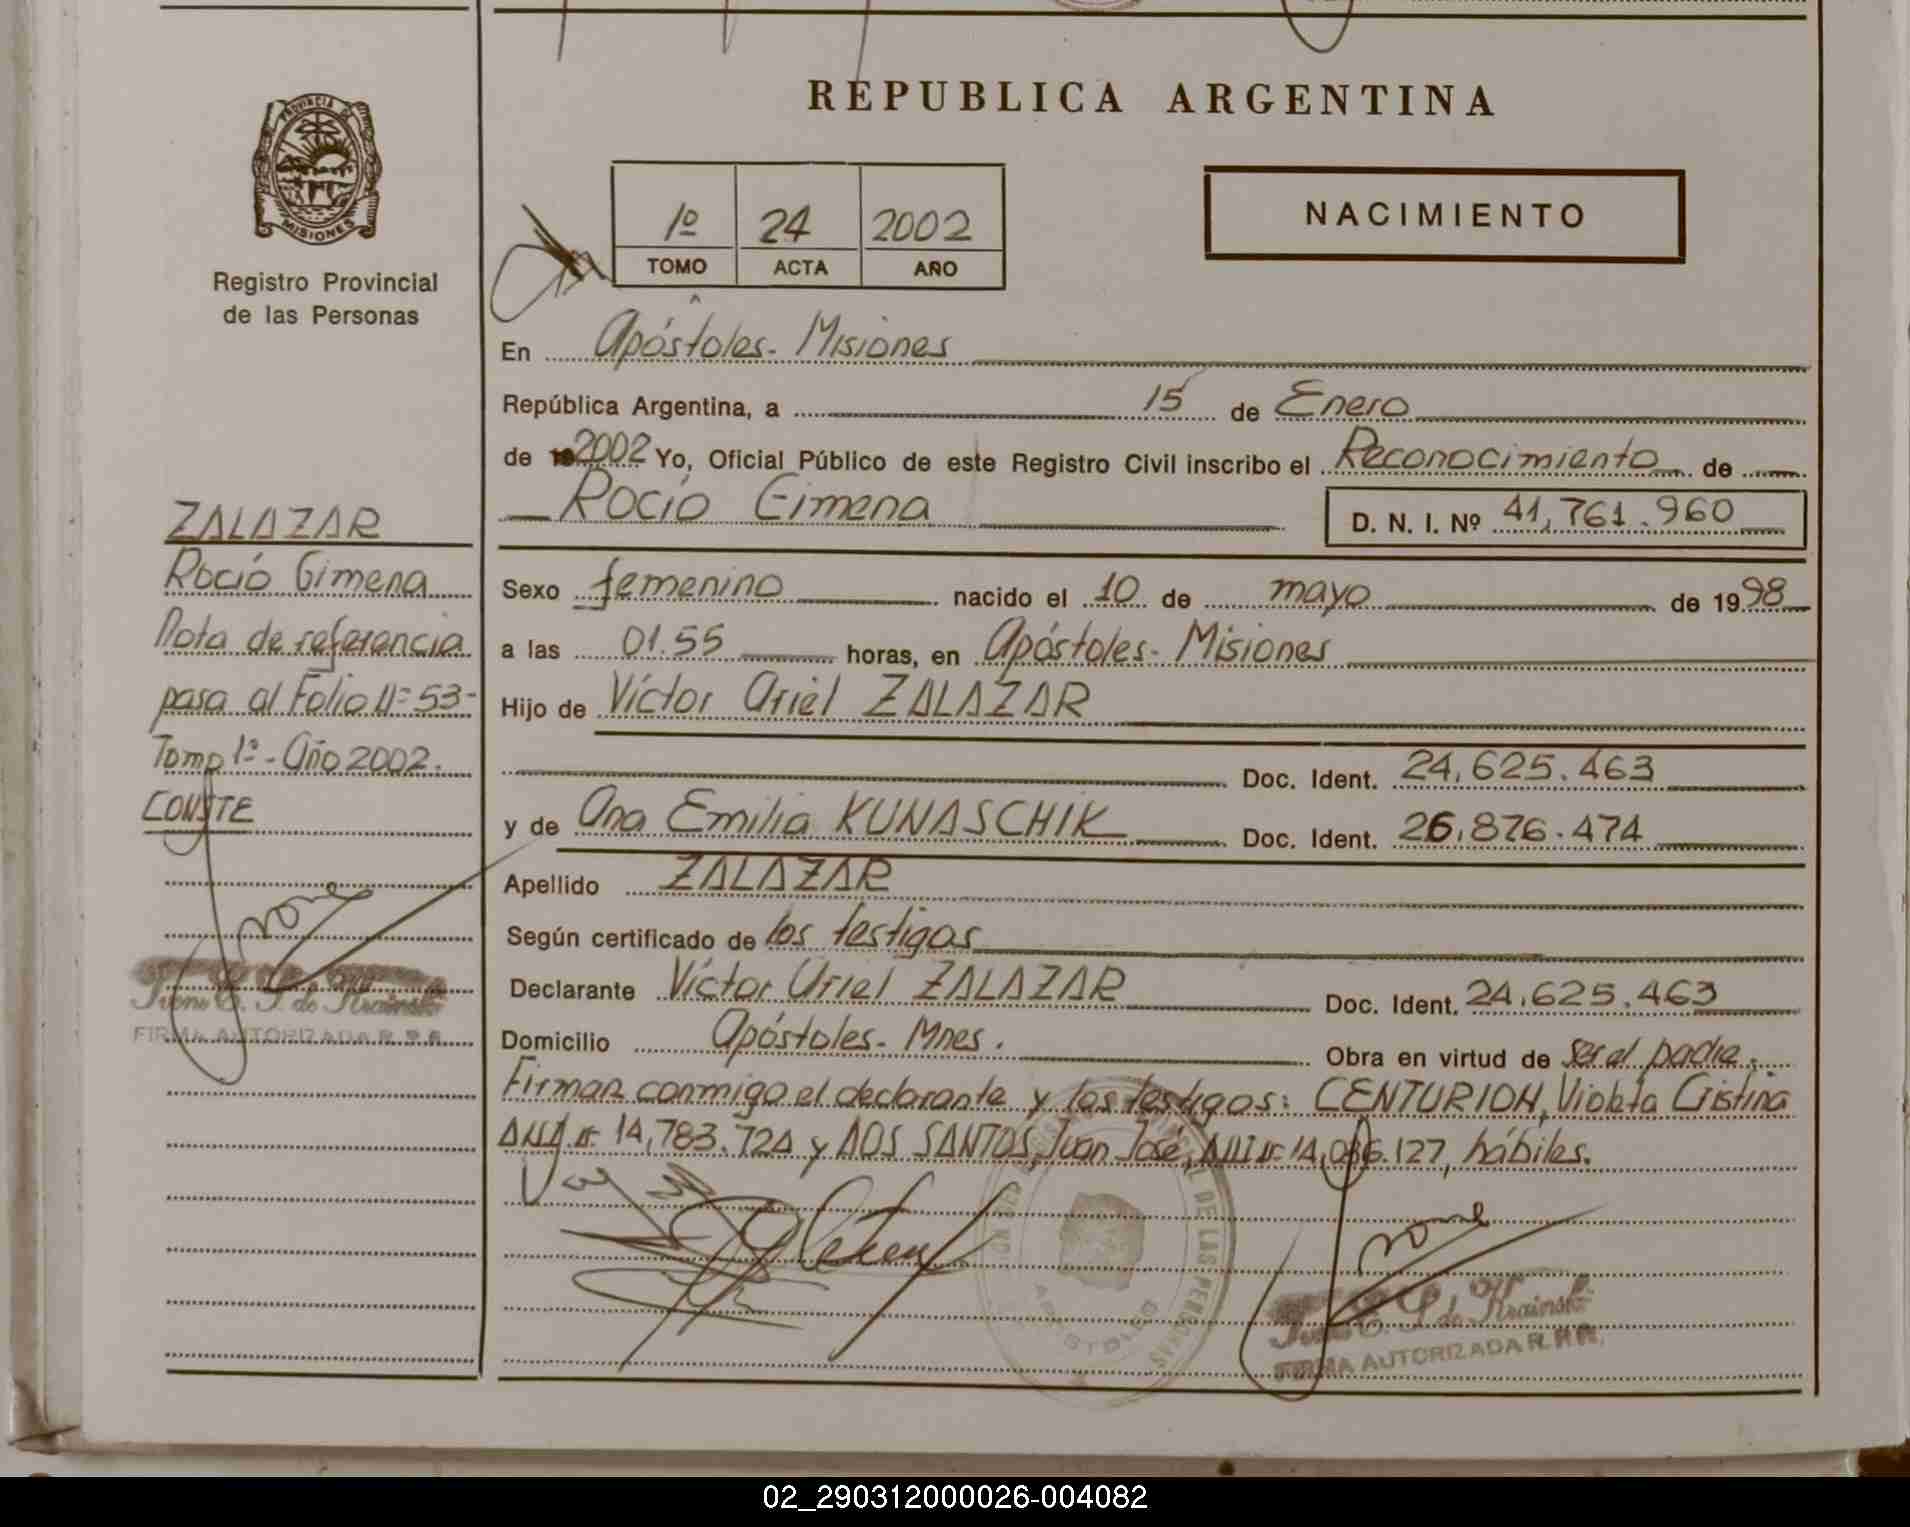 REPUBLICA ARGENTINA
PROVINCIA DE
MISIONES
Registro Provincial
de las Personas
1º 24 2002
TOMO ACTA AÑO
NACIMIENTO
En Apóstoles- Misiones
República Argentina, a 15 de Enero
de 2002 Yo, Oficial Público de este Registro Civil inscribo el Reconocimiento de
Rocío Gimena D. N. I. Nº 41,761.960
Sexo femenino nacido el 10 de mayo de 1998
a las 01.55 horas, en Apóstoles- Misiones
Hijo de Víctor Uriel ZALAZAR
Doc. Ident. 24,625.463
y de Ana Emilia KUNASCHIK Doc. Ident. 26,876.474
Apellido ZALAZAR
Según certificado de los testigos
Declarante Víctor Uriel ZALAZAR Doc. Ident. 24.625.463
Domicilio Apóstoles- Mnes. Obra en virtud de ser el padre,
Firman conmigo el declarante y los testigos: CENTURION, Violeta Cristina
14,783.724 y DOS SANTOS, Juan José, 14,086.127, hábiles.
ZALAZAR
Rocío Gimena
Nota de referencia
pasa al Folio Nº 53-
Tomo 1º- Año 2002.
CONSTE
FIRMA AUTORIZADA R.P.P.
DE LAS PERSONAS
APOSTOLES
FIRMA AUTORIZADA R.P.P.
02_290312000026-004082